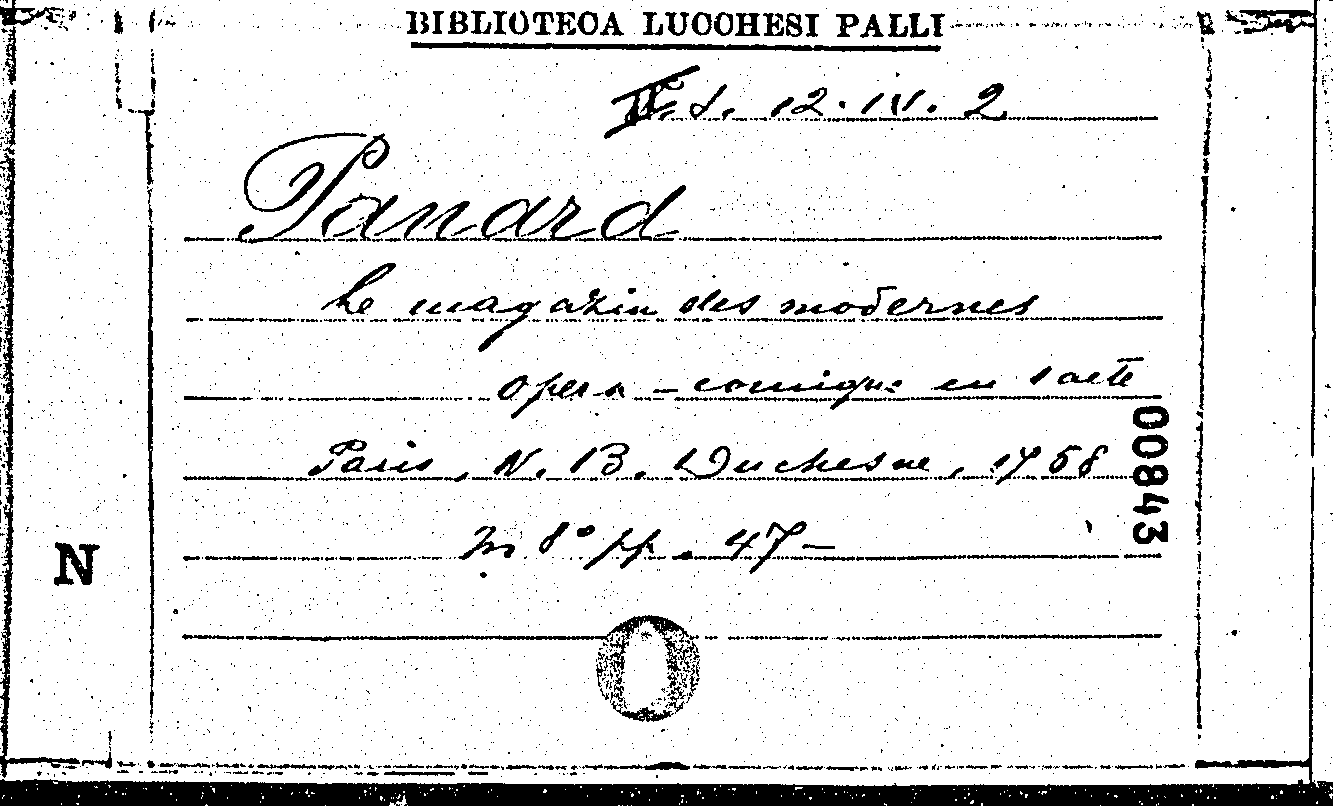 BIBLIOTECA LUCCHESI PALLI
II. S. 12. IV. 2
Panard
Le magazin des modernes
opera-comique en 1 acte
Paris, N. B. Duchesne, 1758
in 8° pp. 47-
00843
N